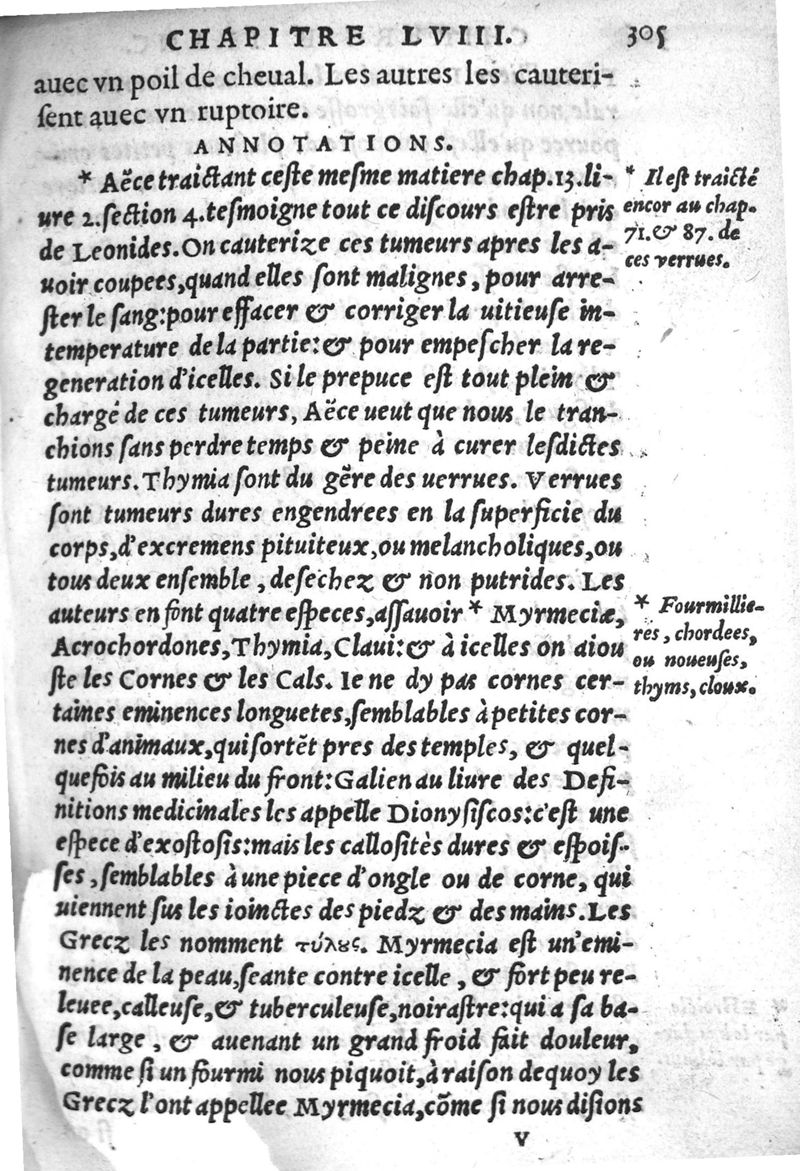 CHAPITRE LVIII. 305
auec vn poil de cheual. Les autres les cauteri-
ſent auec vn ruptoire.
ANNOTATIONS.
* Aëce traictant ceſte meſme matiere chap.13.li-
ure 2.ſection 4.teſmoigne tout ce diſcours eſtre pris
de Leonides.On cauterize ces tumeurs apres les a-
uoir coupees,quand elles ſont malignes, pour arre-
ſter le ſang:pour effacer & corriger la uitieuſe in-
temperature de la partie:& pour empeſcher la re-
generation d'icelles. Si le prepuce eſt tout plein &
chargé de ces tumeurs, Aëce ueut que nous le tran-
chions ſans perdre temps & peine à curer leſdictes
tumeurs.Thymia ſont du gẽre des uerrues. Verrues
ſont tumeurs dures engendrees en la ſuperficie du
corps,d'excremens pituiteux,ou melancholiques,ou
tous deux enſemble, deſechez & non putrides. Les
auteurs en font quatre eſpeces,aſſauoir * Myrmeciæ,
Acrochordones,Thymia,Claui:& à icelles on aiou
ſte les Cornes & les Cals. Ie ne dy pas cornes cer-
taines eminences longuetes,ſemblables à petites cor-
nes d'animaux,qui ſortẽt pres des temples, & quel-
quefois au milieu du front:Galien au liure des Defi-
nitions medicinales les appelle Dionyſiſcos:c'eſt une
eſpece d'exoſtoſis:mais les calloſitès dures & eſpoiſ-
ſes,ſemblables à une piece d'ongle ou de corne, qui
uiennent ſus les ioinctes des piedz & des mains.Les
Grecz les nomment τύλους. Myrmecia eſt un'emi-
nence de la peau,ſeante contre icelle, & fort peu re-
leuee,calleuſe,& tuberculeuſe,noiraſtre:qui a ſa ba-
ſe large, & auenant un grand froid fait douleur,
comme ſi un fourmi nous piquoit,à raiſon dequoy les
Grecz l'ont appellee Myrmecia,cõme ſi nous diſions
V
* Il eſt traicté
encor au chap.
71.& 87. de
ces verrues.
* Fourmillie-
res, chordees,
ou noueuſes,
thyms, cloux.